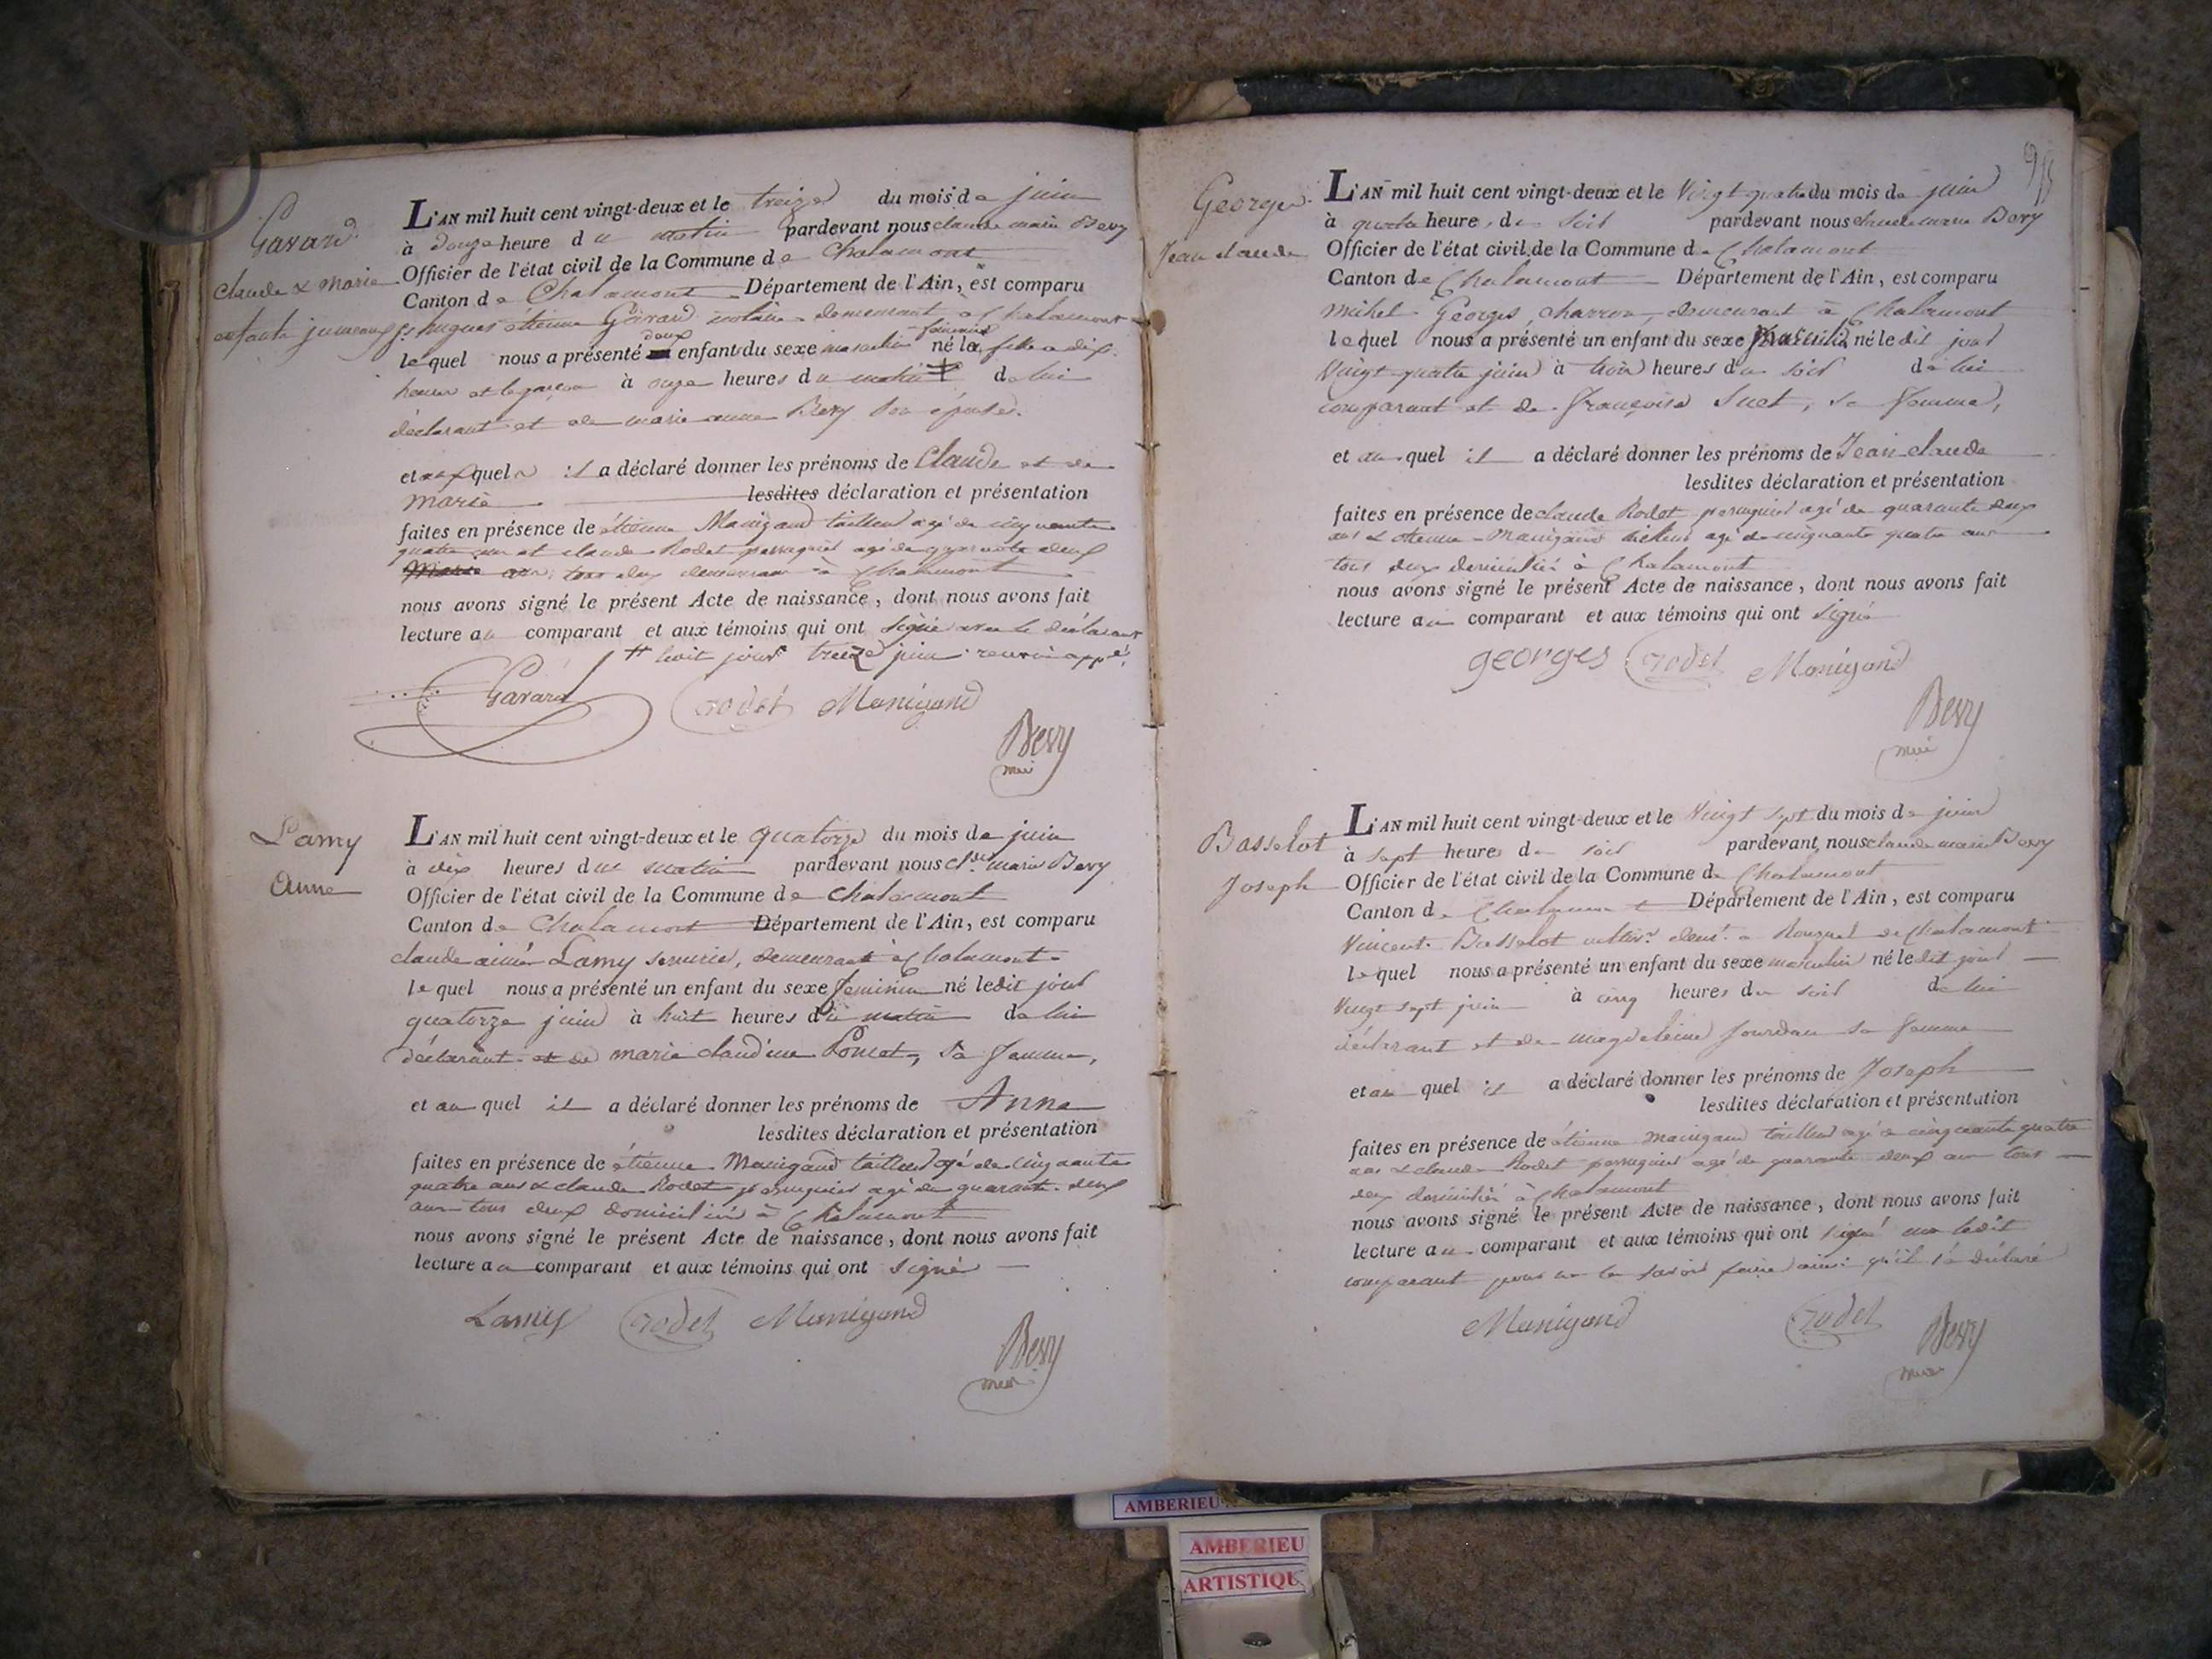 Gavand
claude & marie
enfants jumeaux
L'AN mil huit cent vingt-deux et le treize du mois de juin
à douze heure du matin pardevant nous claude marie Bevy
Officier de l'état civil de la Commune de Chalamont
Canton de Chalamont Département de l'Ain, est comparu
hugues étienne Gavand notaire demeurant à Chalamont
lequel nous a présenté deux enfants du sexe masculin féminin né le la fille a dix
heures et le garçon à onze heures du matin de lui
déclarant et de marie anne Bevy son épouse.
et auxquels il a déclaré donner les prénoms de Claude et de
Marie lesdites déclaration et présentation
faites en présence de étienne Manigand tailleur agé de cinquante
quatre ans et claude Rodet perruquier agé de quarante deux
ans tous deux demeurant à Chalamont
nous avons signé le présent Acte de naissance, dont nous avons fait
lecture au comparant et aux témoins qui ont signé avec le déclarant
dit jour treize juin renvoi app.é
Gavand Rodet Manigand
Bevy
mire
Lamy
Anne
L'AN mil huit cent vingt-deux et le quatorze du mois de juin
à dix heures du matin pardevant nous cl.de marie Bevy
Officier de l'état civil de la Commune de Chalamont
Canton de Chalamont Département de l'Ain, est comparu
claude aimé Lamy serrurier, demeurant à Chalamont
lequel nous a présenté un enfant du sexe feminin né ledit jour
quatorze juin à huit heures du matin de lui
déclarant et de marie claudine Poncet, sa femme,
et au quel il a déclaré donner les prénoms de Anne
lesdites déclaration et présentation
faites en présence de étienne Manigand tailleur agé de cinquante
quatre ans & claude Rodet perruquier agé de quarante deux
ans tous deux domiciliés à Chalamont
nous avons signé le présent Acte de naissance, dont nous avons fait
lecture au comparant et aux témoins qui ont signé
Lamy Rodet Manigand
Bevy
mire
Georges
Jean claude
L'AN mil huit cent vingt-deux et le Vingt quatre du mois de juin
à quatre heure, du soir pardevant nous claude marie Bevy
Officier de l'état civil de la Commune de Chalamont
Canton de Chalamont Département de l'Ain, est comparu
michel Georges, charron, demeurant à Chalamont
lequel nous a présenté un enfant du sexe masculin né ledit jour
Vingt quatre juin à trois heures du soir de lui
comparant et de françoise Suet, sa femme,
et au quel il a déclaré donner les prénoms de Jean claude
lesdites déclaration et présentation
faites en présence de claude Rodet perruquier agé de quarante deux
ans & étienne Manigand tailleur agé de cinquante quatre ans
tous deux domiciliés à Chalamont
nous avons signé le présent Acte de naissance, dont nous avons fait
lecture au comparant et aux témoins qui ont signé
georges Rodet Manigand
Bevy
mire
Basselot
Joseph
L'AN mil huit cent vingt-deux et le Vingt sept du mois de juin
à sept heures du soir pardevant nous claude marie Bevy
Officier de l'état civil de la Commune de Chalamont
Canton de Chalamont Département de l'Ain, est comparu
Vincent Basselot cultiv.r dem.t a de Chalamont
lequel nous a présenté un enfant du sexe masculin né ledit jour
Vingt sept juin à cinq heures du soir de lui
déclarant et de magdeleine Jourdan sa femme
et au quel il a déclaré donner les prénoms de Joseph
lesdites déclaration et présentation
faites en présence de étienne manigand tailleur agé de cinquante quatre
ans & claude Rodet perruquier agé de quarante deux ans tous
deux domiciliés à Chalamont
nous avons signé le présent Acte de naissance, dont nous avons fait
lecture au comparant et aux témoins qui ont signé non ledit
comparant pour ne le savoir faire ainsi qu'il l'a déclaré
Manigand Rodet Bevy
mire
AMBERIEU
AMBERIEU
ARTISTIQU